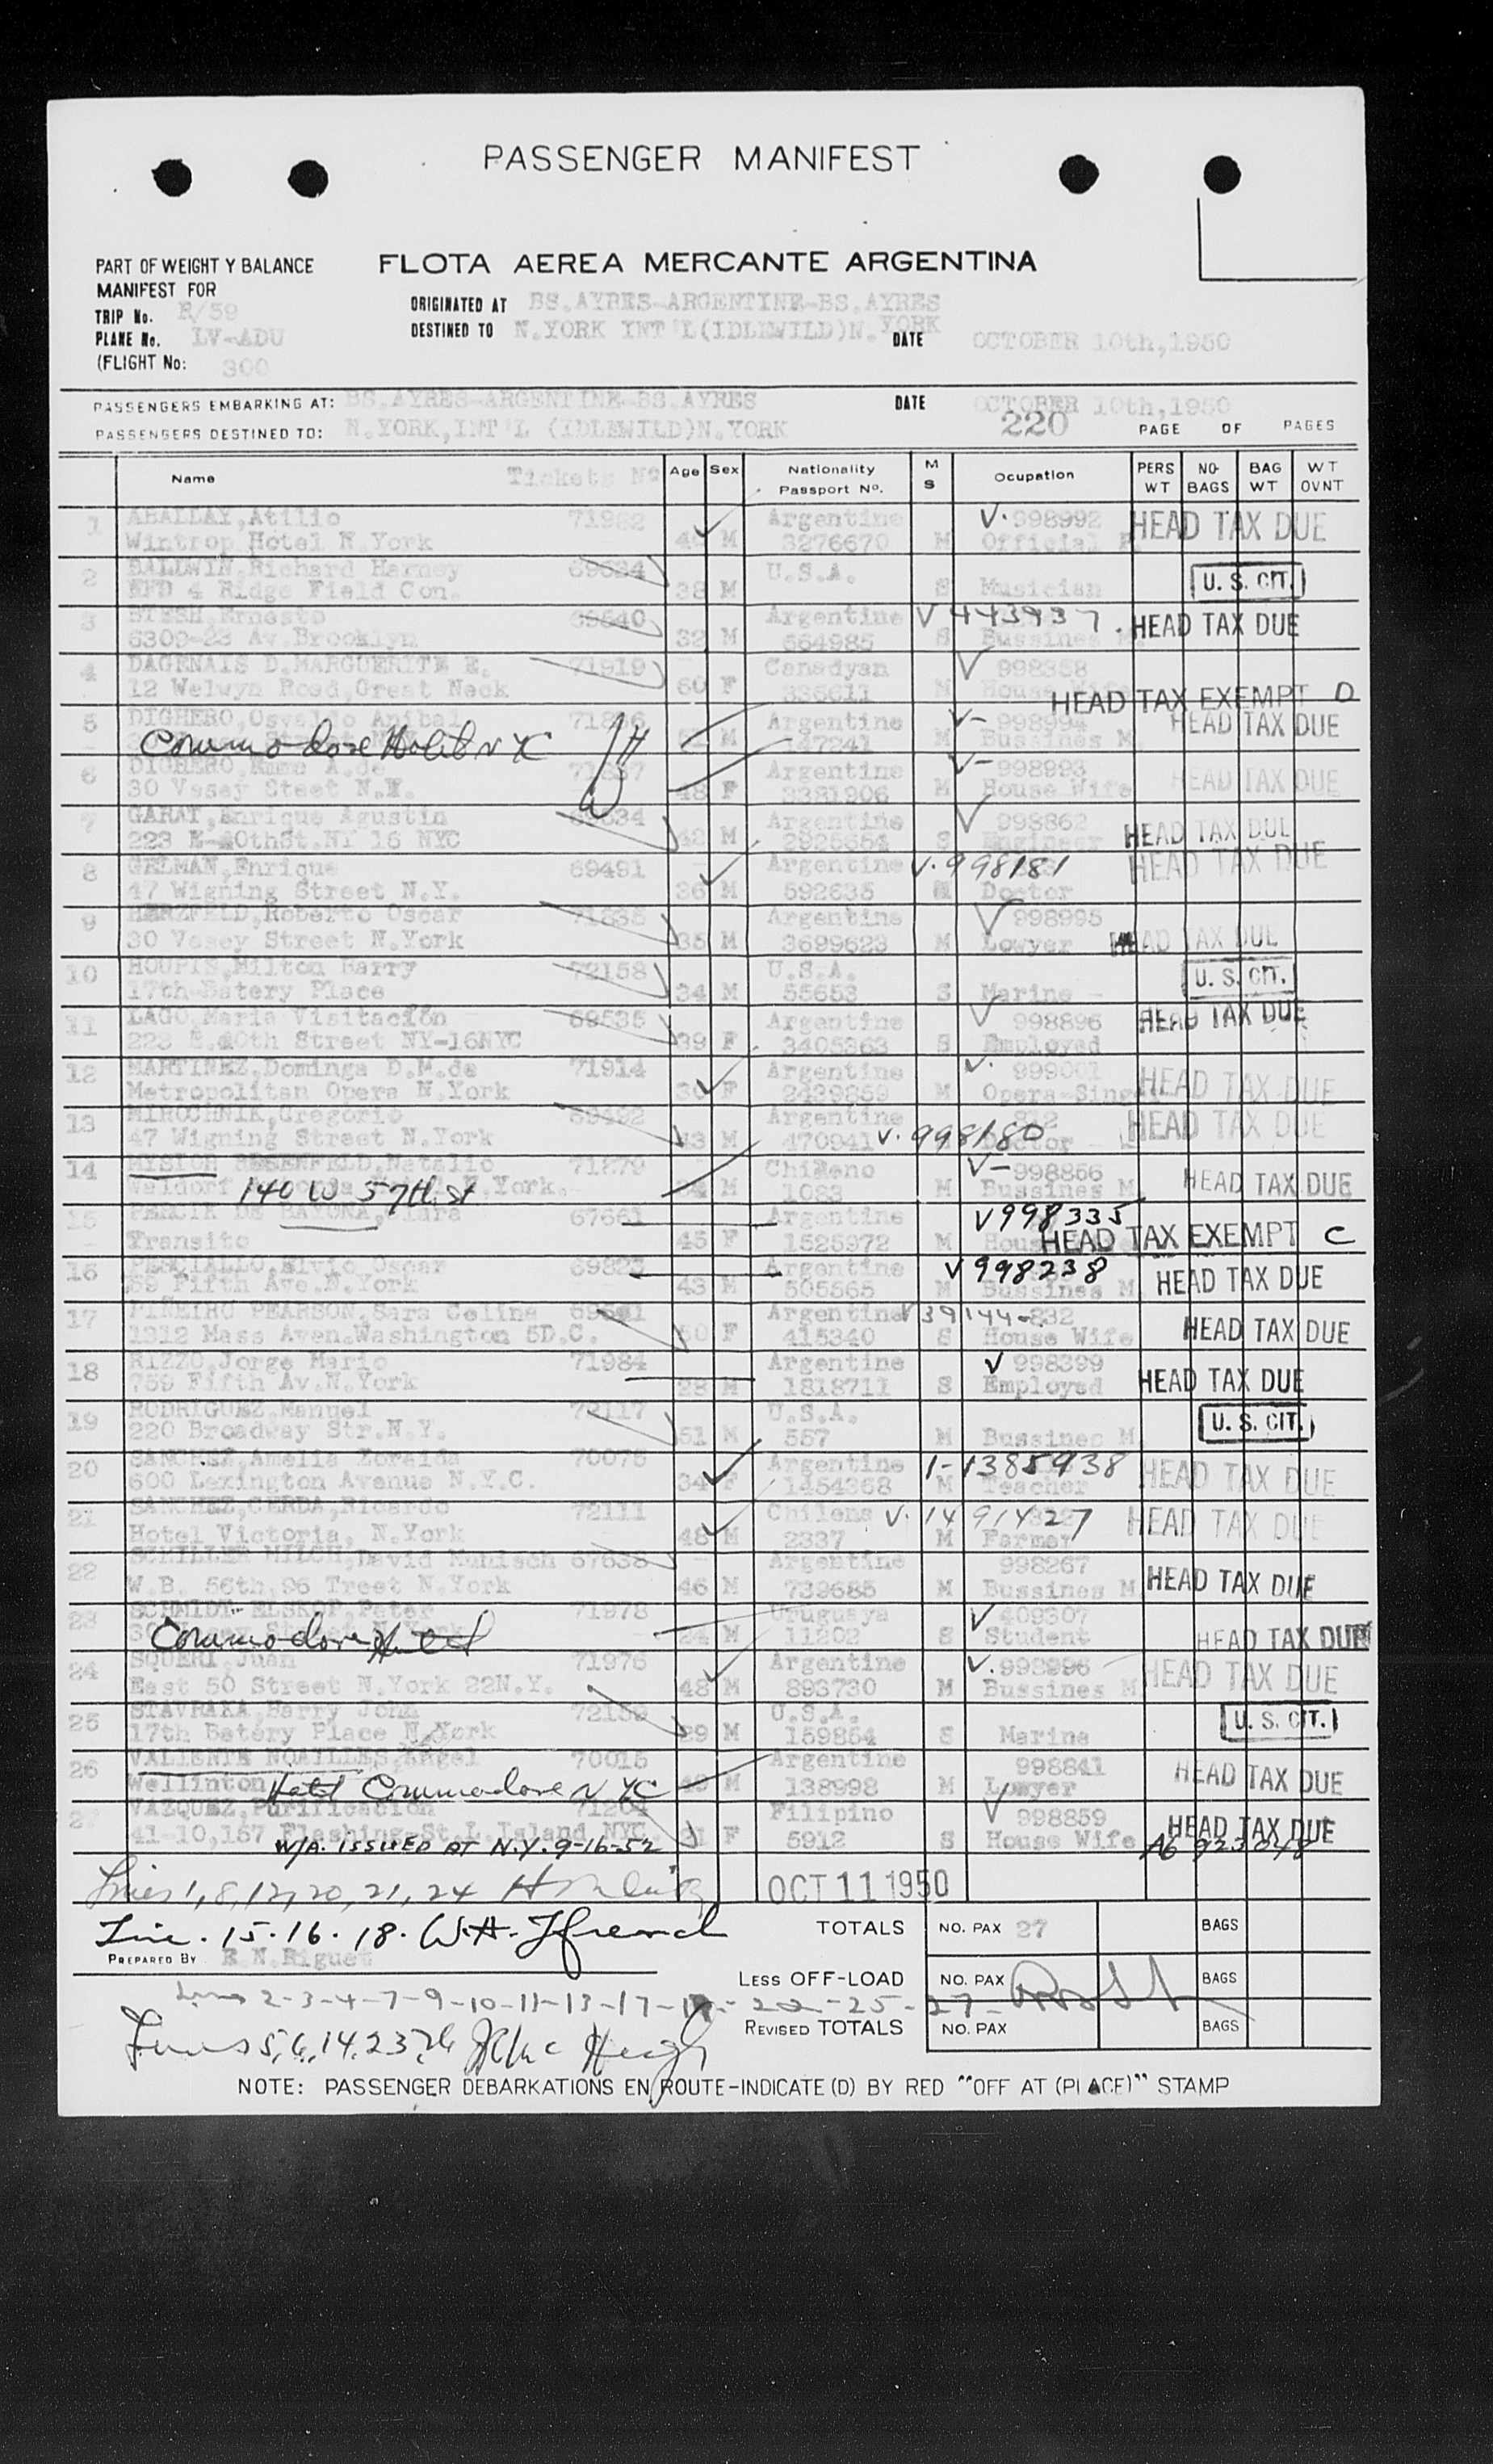 PASSENGER MANIFEST
PART OF WEIGHT Y BALANCE
MANIFEST FOR
FLOTA AEREA MERCANTE ARGENTINA
TRIP No. R/59
ORIGINATED AT BS.AYRES-ARGENTINE-BS.AYRES
PLANE No. LV-ADU
DESTINED TO N.YORK INT'L(IDLEWILD)N.YORK DATE OCTOBER 10th,1950
(FLIGHT No: 300
PASSENGERS EMBARKING AT: BS.AYRES-ARGENTINE-BS.AYRES DATE OCTOBER 10th,1950
PASSENGERS DESTINED TO: N.YORK,INT'L (IDLEWILD)N.YORK 220 PAGE OF PAGES
Name Tickets Nº Age Sex Nationality Passport Nº. M S Ocupation PERS WT NO- BAGS BAG WT WT OVNT
1 ABALLAY,Atilio 71982 Argentine V. 998992 HEAD TAX DUE
Wintrop Hotel N.York M 3276670 M Official
2 BALDWIN,Richard Harney 69634 U.S.A. U. S. CIT.
RFD 4 Ridge Field Con. 38 M S Musician
3 STESH Ernesto 69640 Argentine V 443937 HEAD TAX DUE
6309-23 Av.Brooklyn 32 M 664985 S Bussines
4 DAGENAIS D.MARGUERITE E. 71919 Canadyan V 998358
12 Welwyn Road,Great Neck 60 F 335611 M HEAD TAX EXEMPT D
5 DIGHERO,Osvaldo Anibal Argentine V- 998994 HEAD TAX DUE
Commodore Hotel N YC M 147241 M Bussines M
6 DIGHERO, A.de 71857 Argentine V- 998993 HEAD TAX DUE
30 Vesey Steet N.Y. 48 F 3381906 M House Wife
7 GARAT,Enrique Agustin 69634 Argentine V 998862 HEAD TAX DUE
223 E-40thSt.NY 16 NYC M 2925654 S Engineer
8 GELMAN,Enrique 69491 Argentine V. 998181 HEAD TAX DUE
47 Wigning Street N.Y. 36 M 592635 M Doctor
9 HERZFELD,Roberto Oscar 71835 Argentine V 998995 HEAD TAX DUE
30 Vesey Street N.York 35 M 3699623 M Lowyer
10 HOUPIS,Milton Harry 72158 U.S.A. U. S. CIT.
17th-Batery Place 34 M 55653 S Marine
11 LAGO,Maria Visitación 69535 Argentine V 998896 HEAD TAX DUE
223 E.40th Street NY-16NYC 39 F 3405363 S Employed
12 MARTINEZ,Dominga D.M.de 71914 Argentine V. 999001 HEAD TAX DUE
Metropolitan Opera N.York 30 F 2439859 M Opera-Sing
13 MIROCHNIK,Gregorio 69492 Argentine HEAD TAX DUE
47 Wigning Street N.York 43 M 470941 V. 998180 Doctor
14 MYSIOR ROSENFELD,Natalio 71279 Chileno V- 998856 HEAD TAX DUE
Waldorf 140 W 57th st N.York. M 1083 M Bussines M
15 PERCIK DE BAYONA,Clara 67661 Argentine V998335
Transito 45 F 1525972 M HEAD TAX EXEMPT C
16 PESCIALLO,Elvio Oscar 69823 Argentine V998238 HEAD TAX DUE
59 Fifth Ave.N.York 43 M 505565 M Bussines M
17 PIÑEIRO PEARSON,Sara Celina Argentine V 39144-832 HEAD TAX DUE
1312 Mass Aven.Washington 5D.C. 50 F 415340 S House Wife
18 RIZZO,Jorge Mario 71984 Argentine V 998399 HEAD TAX DUE
759 Fifth Av.N.York M 1818711 S Employed
19 RODRIGUEZ,Manuel 72117 U.S.A. U. S. CIT.
220 Broadway Str.N.Y. 51 M 557 M Bussines M
20 SANCHEZ,Amelia Zoraida 70075 Argentine 1-1385938 HEAD TAX DUE
600 Lexington Avenue N.Y.C. 34 F 1454368 M Teacher
21 SANCHEZ,CERDA,Ricardo 72111 Chilens V. 1491427 HEAD TAX DUE
Hotel Victoria, N.York 48 M 2337 M Farmer
22 SCHILLER MILCH,David Manisch 67638 Argentine 998267 HEAD TAX DUE
W.B. 56th,96 Treet N.York 46 M 739685 M Bussines M
23 SCHMIDT- ELSKOP,Peter 71978 Uruguaya V 409307 HEAD TAX DUE
Commodore Hotel M 11202 S Student
24 SQUERI,Juan 71976 Argentine V. 998996 HEAD TAX DUE
East 50 Street N.York 22N.Y. 48 M 893730 M Bussines M
25 STAVRAKA,Harry John 72159 U.S.A. U. S. CIT.
17th Batery Place N.York 29 M 159854 S Marine
26 VALIENTE NOAILLES,Angel 70015 Argentine 998841 HEAD TAX DUE
Wellinton Hotel Commodore N YC M 138998 M Lowyer
VAZQUEZ,Purificacion 71264 Filipino V 998859 HEAD TAX DUE
41-10,157 Flashing-St.L.Island NYC F 5912 S House Wife A6 923 048
W/A. ISSUED AT N.Y. 9-16-52
Lines 1, 8, 12, 20, 21, 24 OCT 11 1950
Line. 15. 16. 18. W.H. Ffrench TOTALS NO. PAX 27 BAGS
PREPARED BY R.N.Riguet
LESS OFF-LOAD NO. PAX BAGS
Lines 2-3-4-7-9-10-11-13-17-19-22-25-27-
REVISED TOTALS NO. PAX BAGS
Lines 5, 6, 14, 23, 26
NOTE: PASSENGER DEBARKATIONS EN ROUTE-INDICATE (D) BY RED "OFF AT (PLACE)" STAMP